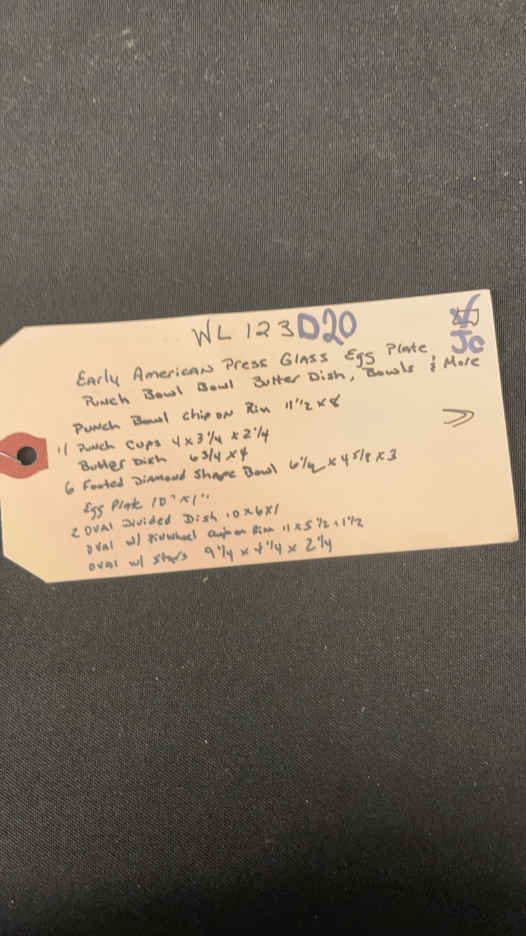 WL 123 D20
JC
Early American Press Glass Egg Plate,
Punch Bowl Bowl Butter Dish, Bowls & More
Punch Bowl chip on Rim 11 1/2 x 8
11 Punch Cups 4 x 3 1/4 x 2 1/4
Butter Dish 6 3/4 x 4
6 Footed Diamond Shape Bowl 6 1/4 x 4 5/8 x 3
Egg Plate 10" x 1"
2 Oval Divided Dish 10 x 6 x 1
Oval w/ Pinwheel on Rim 11 x 5 1/2 x 1 1/2
Oval w/ Stars 9 1/4 x 4 1/4 x 2 1/4